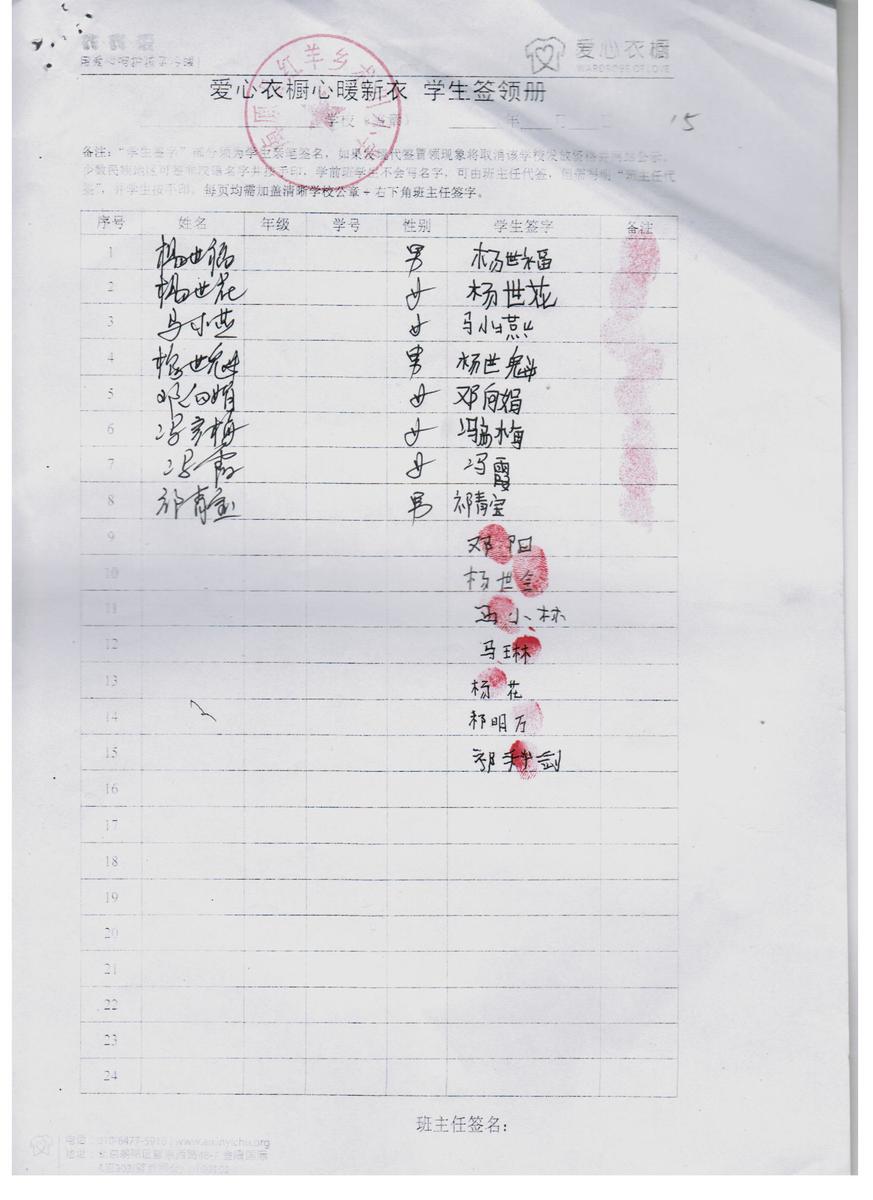 爱心衣橱
WARDROBE OF LOVE
爱心衣橱心暖新衣 学生签领册
学校（盖章） 年 月 日 15
备注：“学生签字”部分须为学生亲笔签名，如果发现代签冒领现象将取消该学校发放资格并网站公示。
少数民族地区可签本民族名字并按手印，学前班学生不会写名字，可由班主任代签，但需写明“班主任代
签”，并学生按手印。每页均需加盖清晰学校公章+右下角班主任签字。
序号 姓名 年级 学号 性别 学生签字 备注
1 杨世福 男 杨世福
2 杨世花 女 杨世花
3 马小燕 女 马小燕
4 杨世魁 男 杨世魁
5 邓向娟 女 邓向娟
6 冯彦梅 女 冯彦梅
7 冯霞 女 冯霞
8 祁青宝 男 祁青宝
9 邓阳
10 杨世金
11 小林
12 马王林
13 杨花
14 祁明万
15 祁 剑
16
17
18
19
20
21
22
23
24
班主任签名：
电话：010-6477-5910 | www.aixinyichu.org